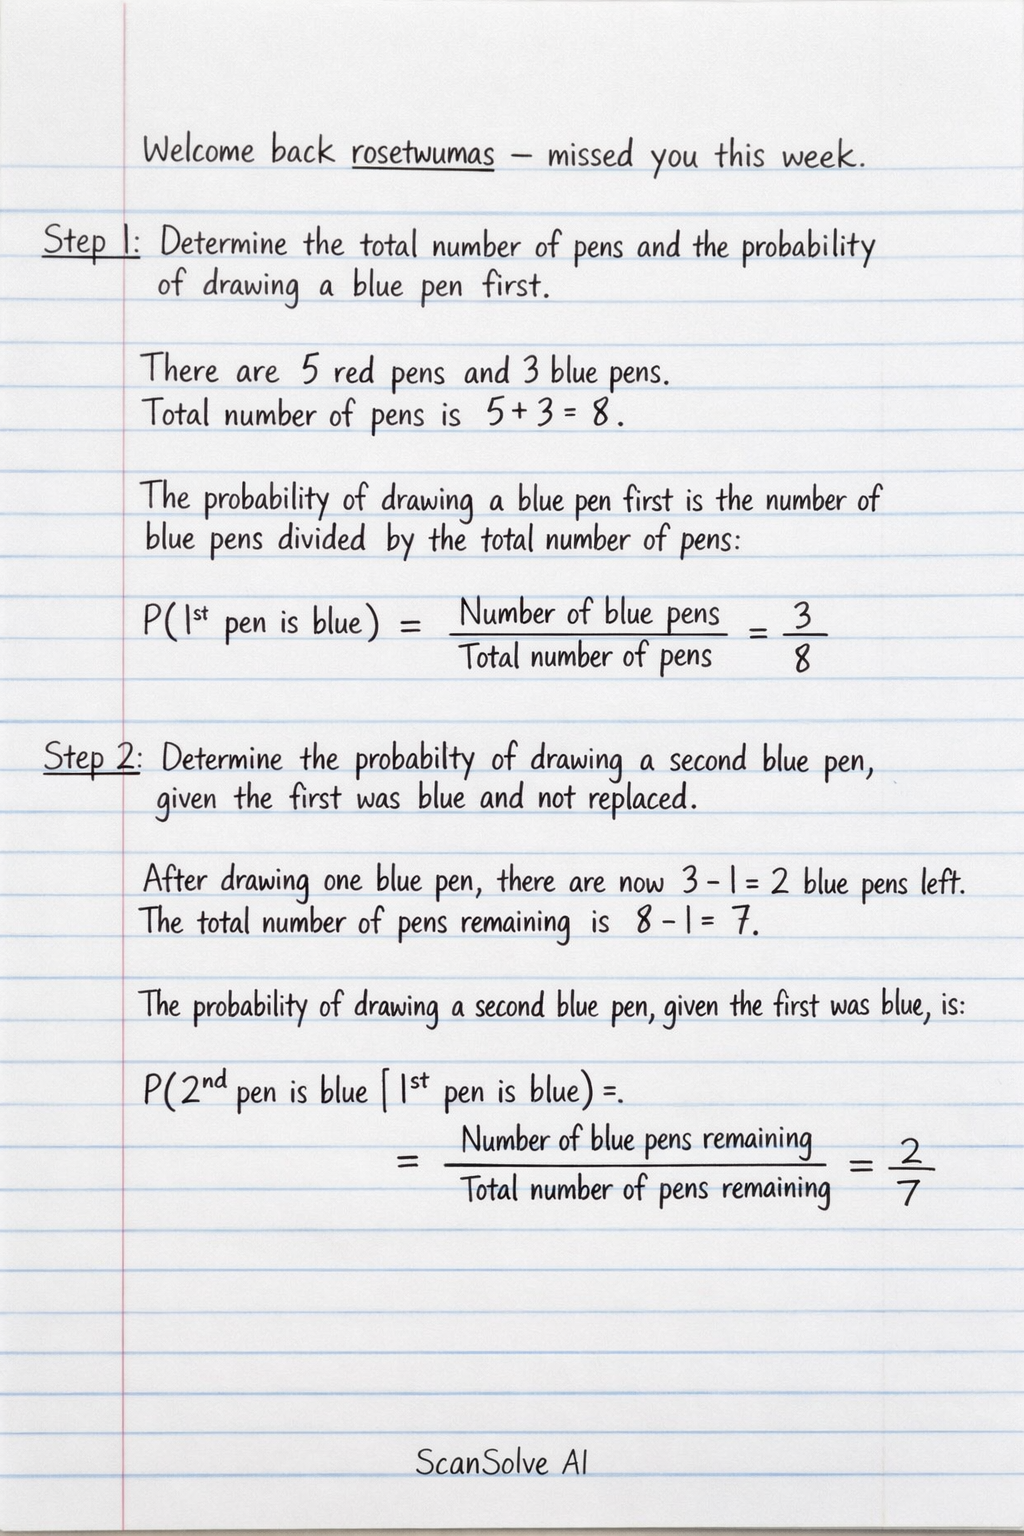 Welcome back rosetwumas — missed you this week.
Step 1: Determine the total number of pens and the probability
of drawing a blue pen first.
There are 5 red pens and 3 blue pens.
Total number of pens is 5 + 3 = 8.
The probability of drawing a blue pen first is the number of
blue pens divided by the total number of pens:
P(1st pen is blue) = Number of blue pens / Total number of pens = 3/8
Step 2: Determine the probabilty of drawing a second blue pen,
given the first was blue and not replaced.
After drawing one blue pen, there are now 3 - 1 = 2 blue pens left.
The total number of pens remaining is 8 - 1 = 7.
The probability of drawing a second blue pen, given the first was blue, is:
P(2nd pen is blue ⌈ 1st pen is blue) =.
= Number of blue pens remaining / Total number of pens remaining = 2/7
ScanSolve AI